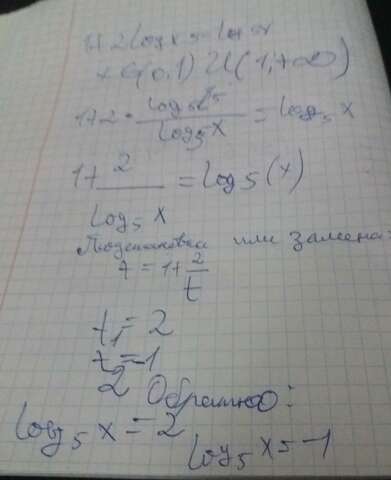 1+2logx5=log5x
x∈(0,1) U (1,+∞)
1+2·log₅5/log₅x=log₅x
1+2/log₅x=log5(x)
Подстановка или замена:
t=1+2/t
t₁=2
t₂=-1
Обратно:
log₅x=2
log₅x=-1